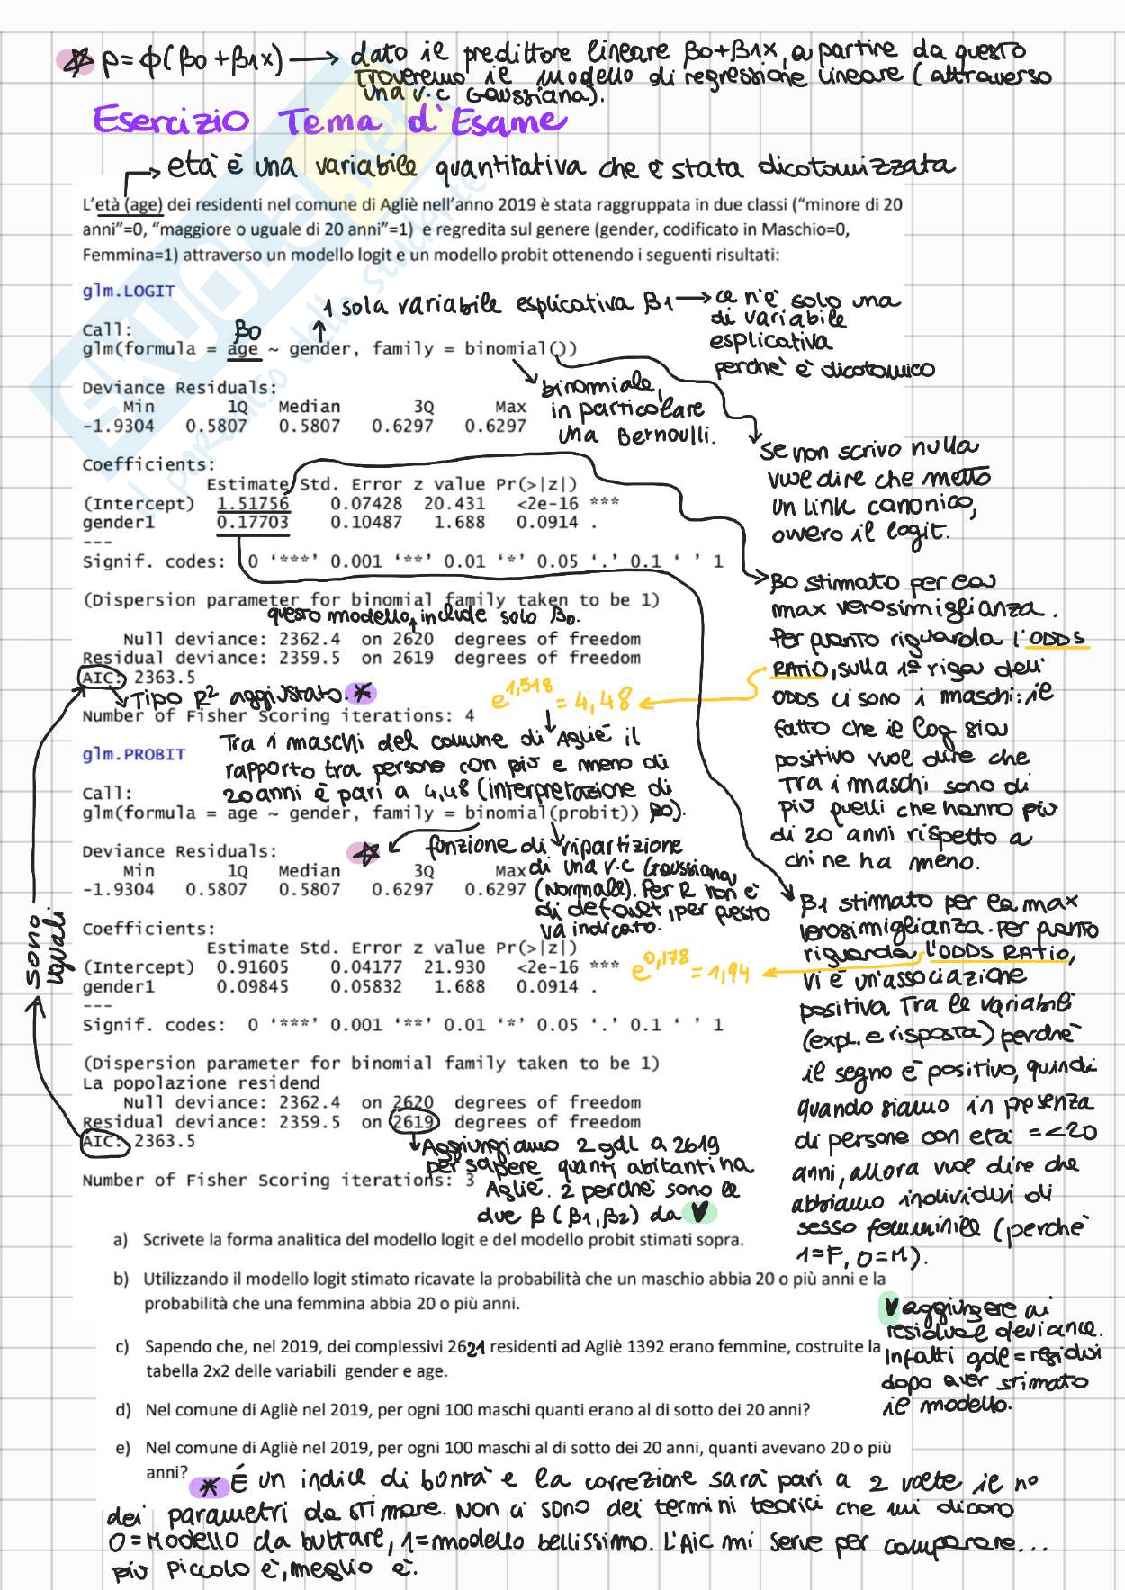 p=ϕ(β0+β1x) → dato il predittore lineare β0+β1x, a partire da questo
troveremo il modello di regressione lineare (attraverso
una v.c Gaussiana).
Esercizio Tema d'Esame
→ età è una variabile quantitativa che è stata dicotomizzata
L'età (age) dei residenti nel comune di Agliè nell'anno 2019 è stata raggruppata in due classi ("minore di 20
anni"=0, "maggiore o uguale di 20 anni"=1) e regredita sul genere (gender, codificato in Maschio=0,
Femmina=1) attraverso un modello logit e un modello probit ottenendo i seguenti risultati:
glm.LOGIT
1 sola variabile esplicativa β1 → ce n'è solo una
di variabile
esplicativa
perchè è dicotomico
Call:
β0
glm(formula = age ~ gender, family = binomial())
binomiale,
in particolare
una Bernoulli.
Deviance Residuals:
Min 1Q Median 3Q Max
-1.9304 0.5807 0.5807 0.6297 0.6297
se non scrivo nulla
vuol dire che metto
un link canonico,
ovvero il logit.
Coefficients:
Estimate Std. Error z value Pr(>|z|)
(Intercept) 1.51756 0.07428 20.431 <2e-16 ***
gender1 0.17703 0.10487 1.688 0.0914 .
---
Signif. codes: 0 '***' 0.001 '**' 0.01 '*' 0.05 '.' 0.1 ' ' 1
β0 stimato per la
max verosimiglianza.
Per quanto riguarda l'ODDS
RATIO, sulla 1ª riga dell'
ODDS ci sono i maschi: il
fatto che il log sia
positivo vuol dire che
tra i maschi sono di
più quelli che hanno più
di 20 anni rispetto a
chi ne ha meno.
(Dispersion parameter for binomial family taken to be 1)
questo modello include solo β0.
Null deviance: 2362.4 on 2620 degrees of freedom
Residual deviance: 2359.5 on 2619 degrees of freedom
AIC: 2363.5
Tipo R² aggiustato. *
e^1,518 = 4,48
Number of Fisher Scoring iterations: 4
Tra i maschi del comune di Agliè il
rapporto tra persone con più e meno di
20 anni è pari a 4,48 (interpretazione di
β0).
glm.PROBIT
Call:
glm(formula = age ~ gender, family = binomial(probit))
funzione di ripartizione
di una v.c Gaussiana
(Normale). Per R non è
di default, per questo
va indicato.
Deviance Residuals:
Min 1Q Median 3Q Max
-1.9304 0.5807 0.5807 0.6297 0.6297
sono uguali
Coefficients:
Estimate Std. Error z value Pr(>|z|)
(Intercept) 0.91605 0.04177 21.930 <2e-16 ***
gender1 0.09845 0.05832 1.688 0.0914 .
---
Signif. codes: 0 '***' 0.001 '**' 0.01 '*' 0.05 '.' 0.1 ' ' 1
e^0,178 = 1,94
β1 stimato per la max
verosimiglianza. Per quanto
riguarda l'ODDS RATIO,
vi è un'associazione
positiva tra le variabili
(expl. e risposta) perchè
il segno è positivo, quindi
quando siamo in presenza
di persone con età =<20
anni, allora vuol dire che
abbiamo individui di
sesso femminile (perchè
1=F, 0=M).
(Dispersion parameter for binomial family taken to be 1)
La popolazione residend
Null deviance: 2362.4 on 2620 degrees of freedom
Residual deviance: 2359.5 on 2619 degrees of freedom
AIC: 2363.5
Aggiungiamo 2 gdl a 2619
per sapere quanti abitanti ha
Agliè. 2 perchè sono le
due β (β1, β2) da ♥
Number of Fisher Scoring iterations: 3
a) Scrivete la forma analitica del modello logit e del modello probit stimati sopra.
b) Utilizzando il modello logit stimato ricavate la probabilità che un maschio abbia 20 o più anni e la
probabilità che una femmina abbia 20 o più anni.
♥ aggiungere ai
residual deviance.
Infatti gdl=residui
dopo aver stimato
il modello.
c) Sapendo che, nel 2019, dei complessivi 2621 residenti ad Agliè 1392 erano femmine, costruite la
tabella 2x2 delle variabili gender e age.
d) Nel comune di Agliè nel 2019, per ogni 100 maschi quanti erano al di sotto dei 20 anni?
e) Nel comune di Agliè nel 2019, per ogni 100 maschi al di sotto dei 20 anni, quanti avevano 20 o più
anni?
* É un indice di bontà e la correzione sarà pari a 2 volte il n°
dei parametri da stimare. Non ci sono dei termini teorici che mi dicono
0=Modello da buttare, 1=modello bellissimo. L'Aic mi serve per comparare...
più piccolo è, meglio è.